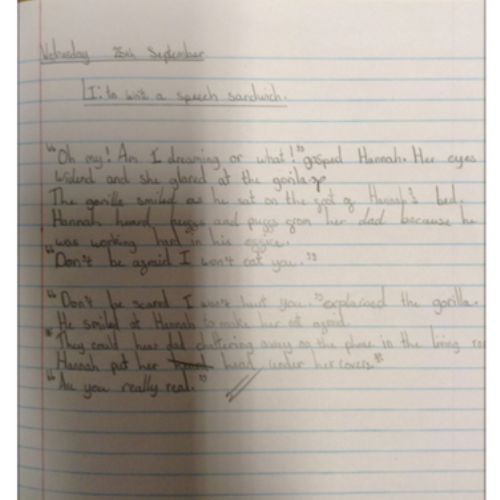 Wednesday 25th September
LI: to write a speech sandwich.
"Oh my! Am I dreaming or what!" gasped Hannah. Her eyes
widend and she glared at the gorila.
The gorilla smiled as he sat on the foot of Hannah's bed.
Hannah heard huffs and puffs from her dad because he
was working hard in his office.
"Don't be afraid I won't eat you."
"Don't be scared I won't hurt you." explained the gorilla.
He smiled at Hannah to make her not afraid.
* They could hear dad chattering away on the phone in the living
Hannah put her head under her covers.*
"Are you really real."